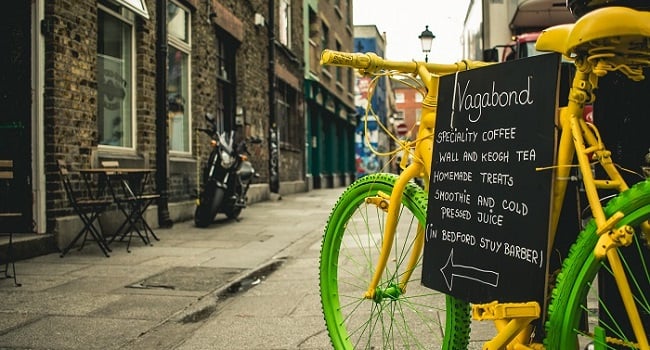 Vagabond
SPECIALITY COFFEE
WALL AND KEOGH TEA
HOMEMADE TREATS
SMOOTHIE AND COLD
PRESSED JUICE
(IN BEDFORD STUY BARBER)